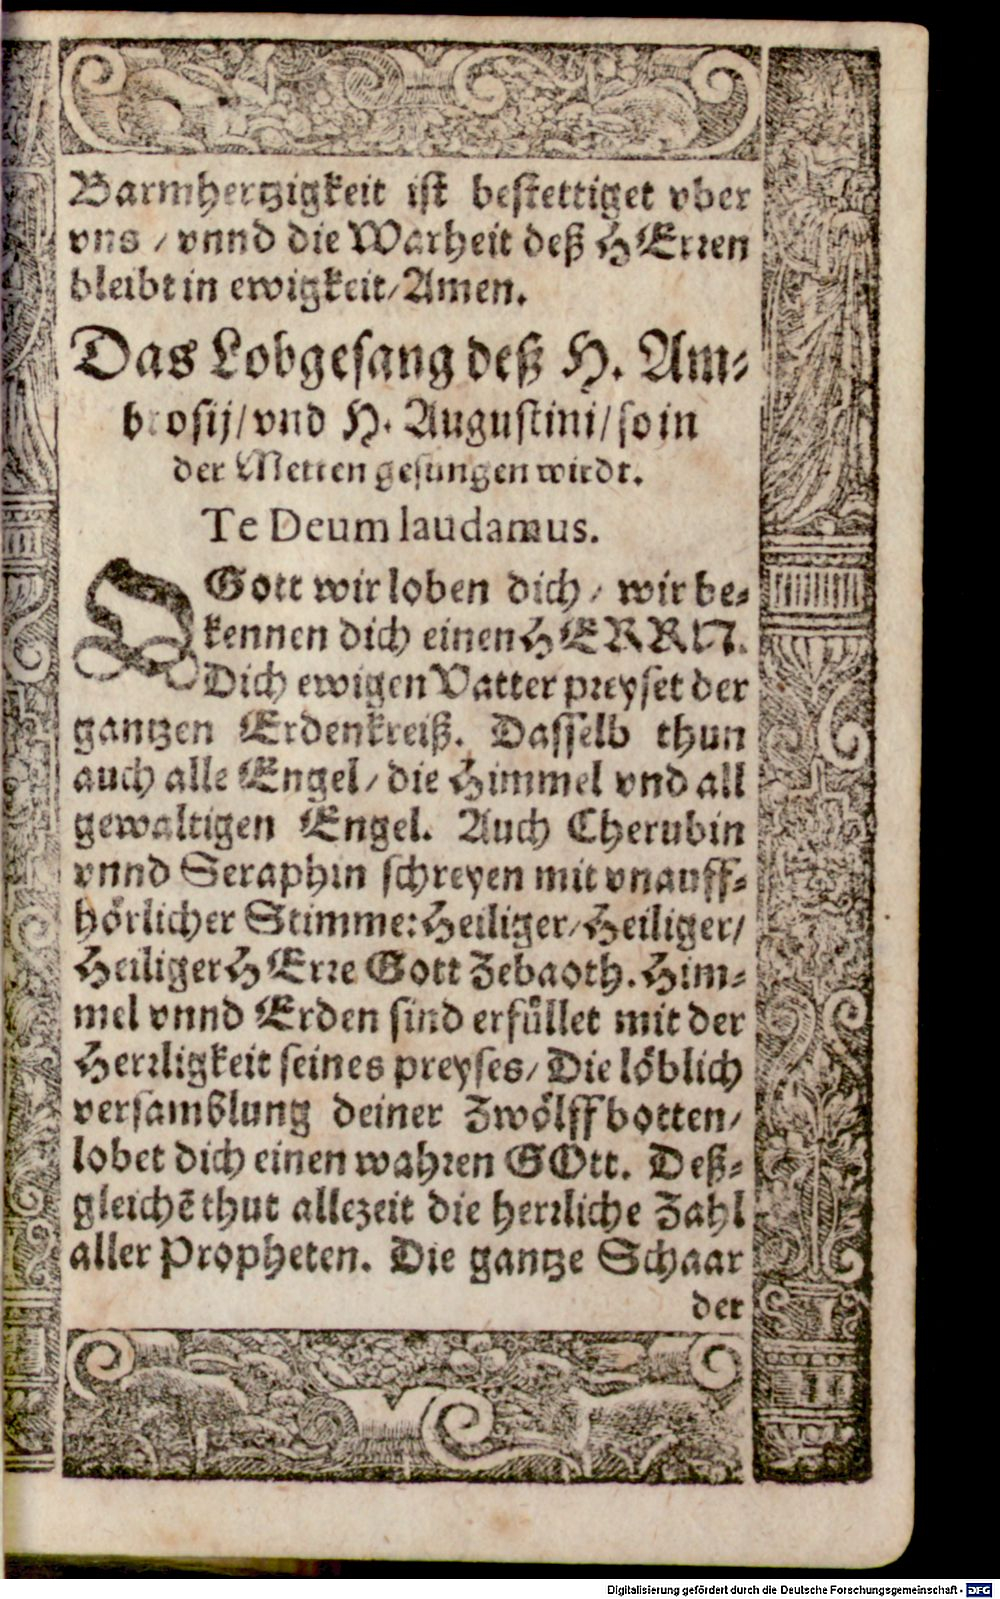 Barmhertzigkeit ist bestettiget vber
vns / vnnd die Warheit deß HErren
bleibt in ewigkeit / Amen.
Das Lobgesang deß H. Am-
brosij / vnd H. Augustini / so in
der Metten gesungen wirdt.
Te Deum laudamus.
O Gott wir loben dich / wir be-
kennen dich einen HERRN.
Dich ewigen Vatter preyset der
gantzen Erdenkreiß. Dasselb thun
auch alle Engel / die Himmel vnd all
gewaltigen Engel. Auch Cherubin
vnnd Seraphin schreyen mit vnauff-
hörlicher Stimme: Heiliger / Heiliger /
Heiliger HErre Gott Zebaoth. Him-
mel vnnd Erden sind erfüllet mit der
Herrligkeit seines preyses / Die löblich
versamblung deiner Zwölffbotten /
lobet dich einen wahren GOtt. Deß-
gleichẽ thut allezeit die herrliche Zahl
aller Propheten. Die gantze Schaar
der
Digitalisierung gefördert durch die Deutsche Forschungsgemeinschaft - DFG